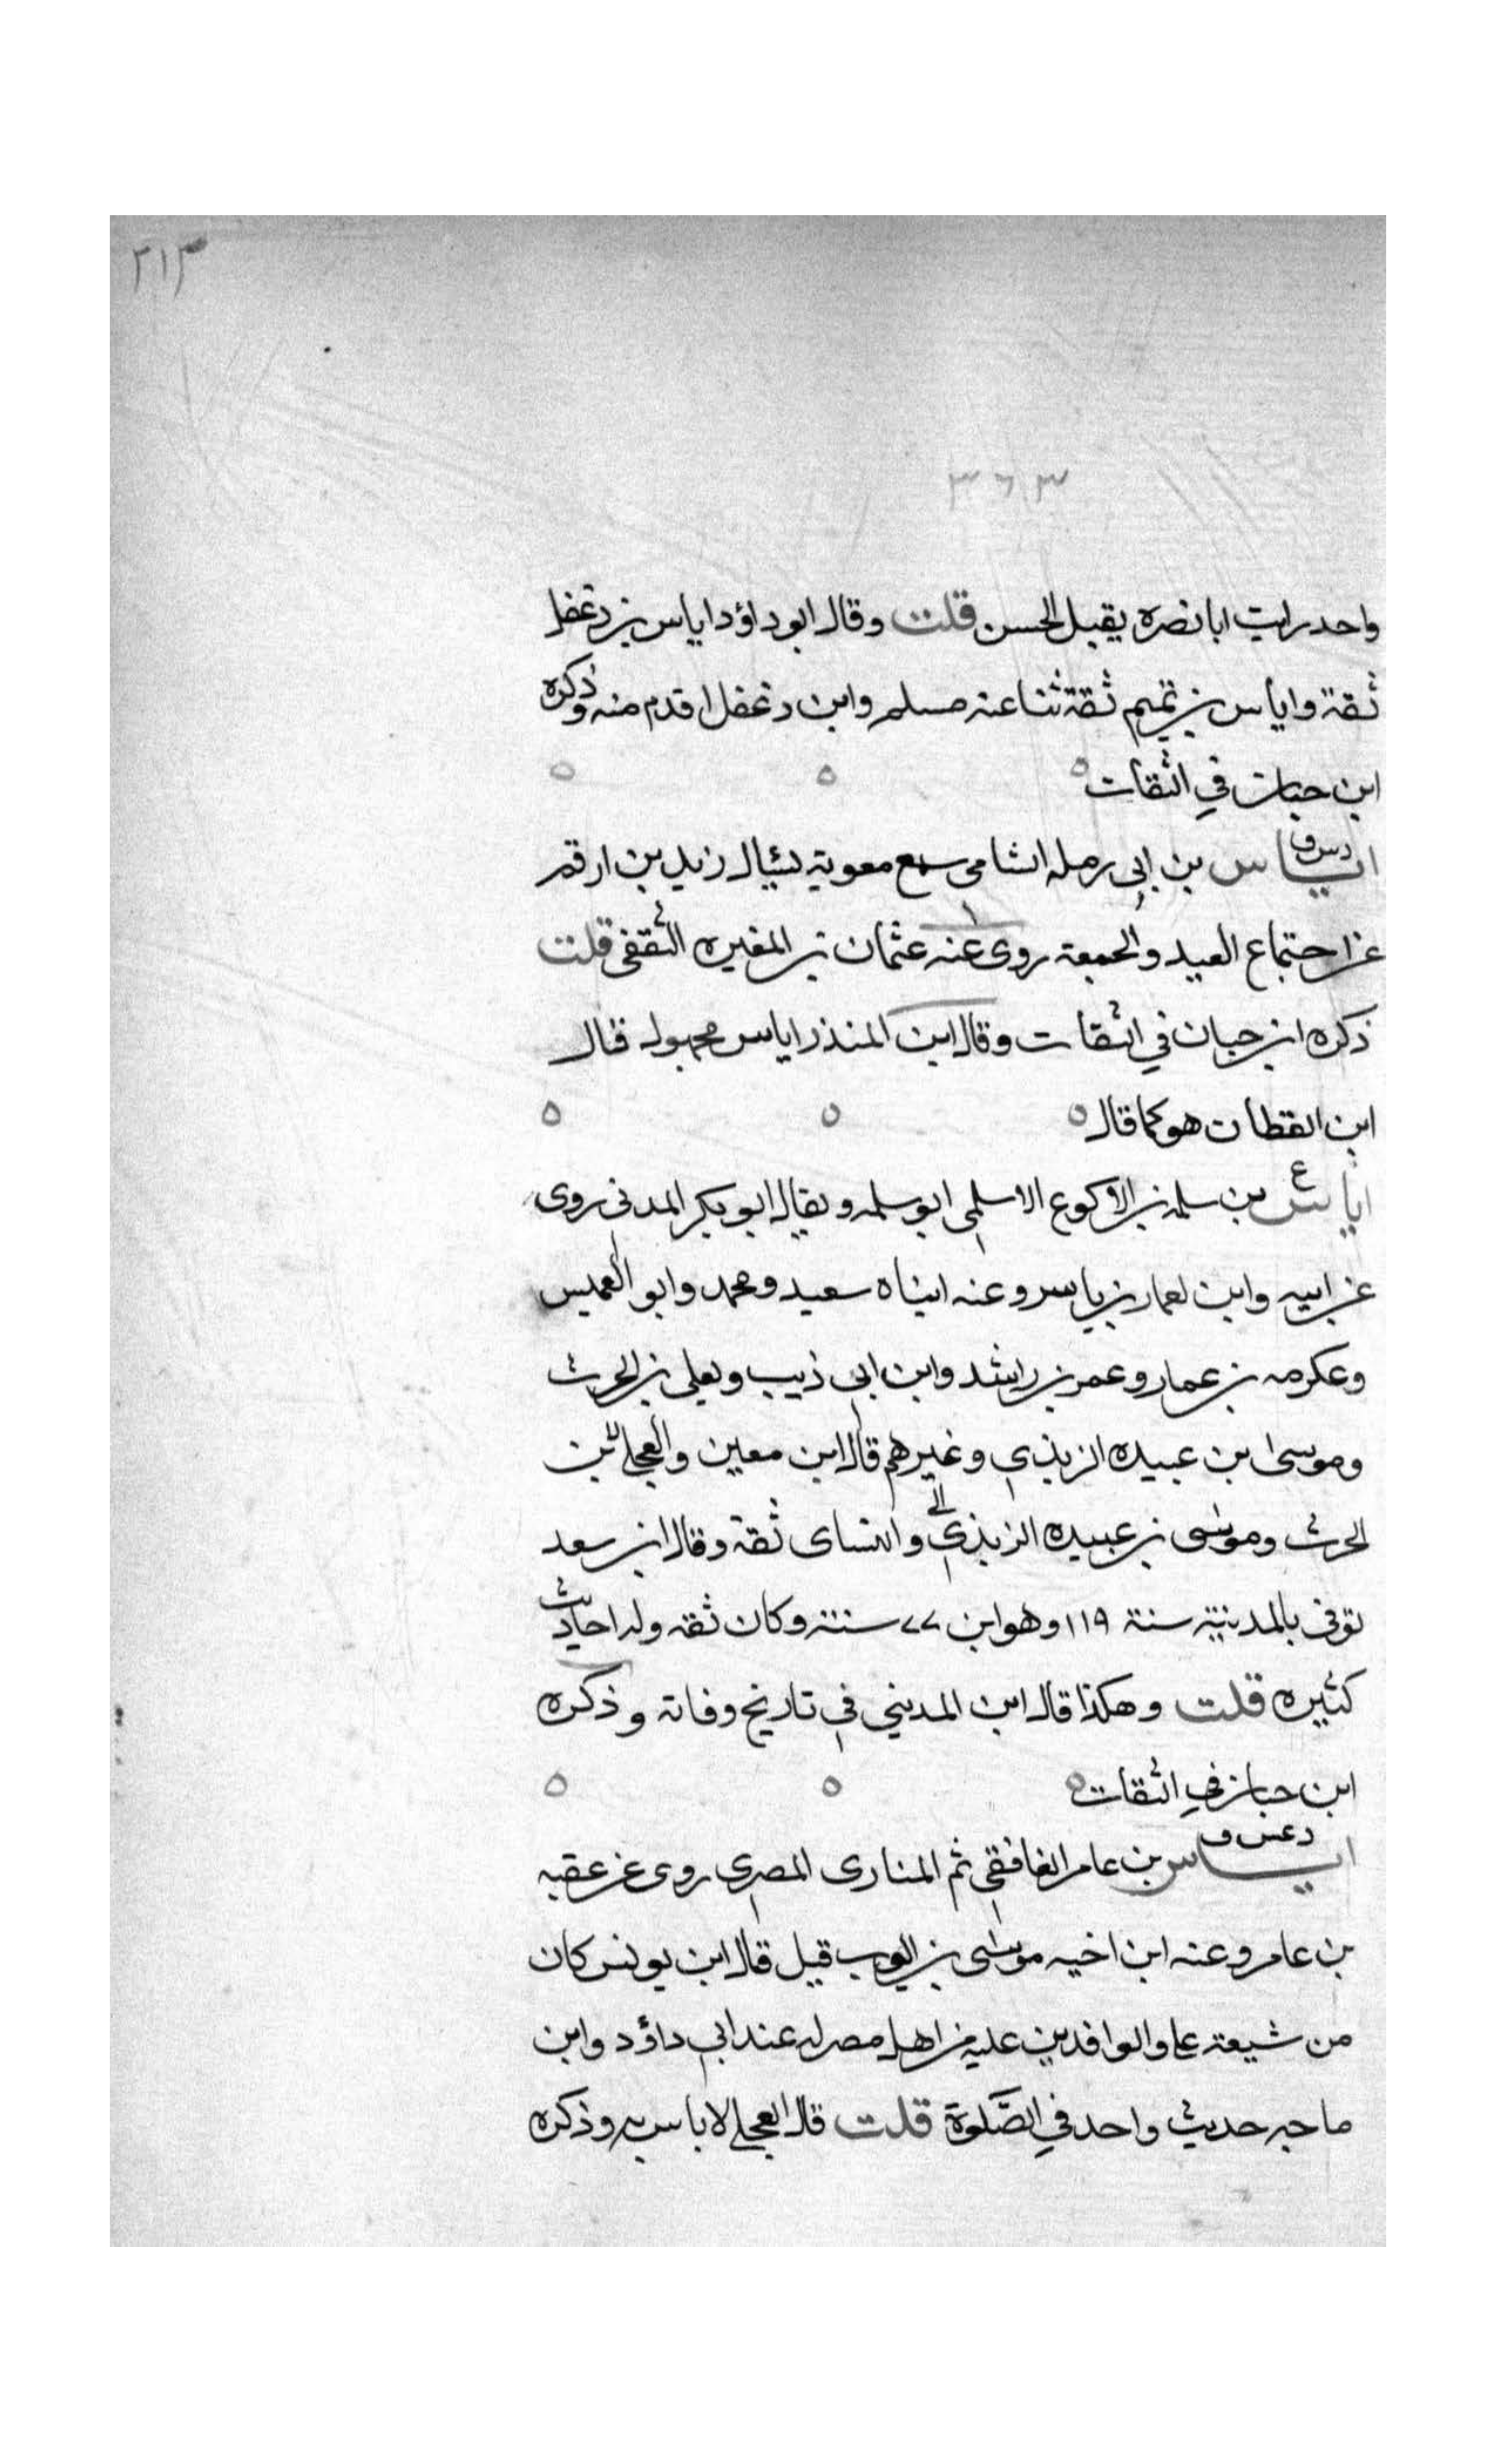 ٢١٣
٣٦٣
واحد رايت ابا نضره يقبل الحسن قلت وقال ابو داؤد اياس بن دغفل
ثقة واياس بن تميم ثقة ثنا عنه مسلم وابن دغفل اقدم منه وذكره
ابن حبان في الثقات ٥ ٥ ٥
دس ق
اياس بن ابي رمله الشامي سمع معوية يسٔال زيد بن ارقم
عن اجتماع العيد والجمعة روى عنه عثمان بن المغيره الثقفي قلت
ذكره ابن حبان في الثقات وقال ابن المنذر اياس مجهول قال
ابن القطان هو كما قال ٥ ٥ ٥
ع
اياس بن سلمة بن الاكوع الاسلمي ابو سلمه ويقال ابو بكر المدني روى
عن ابيه وابن لعمار بن ياسر وعنه ابناه سعيد ومحمد وابو العميس
وعكرمه بن عمار وعمر بن راشد وابن ابي ذيب ويعلى بن الحرث
وموسى بن عبيده الربذي وغيرهم قال ابن معين والعجلي بن
الحرث وموسى بن عبيده الربذي والنساى ثقة وقال ابن سعد
توفى بالمدينة سنة ١١٩ وهو ابن ٧٧ سنة وكان ثقه وله احاديث
كثيره قلت وهكذا قال ابن المديني في تاريخ وفاته وذكره
ابن حبان في الثقات ٥ ٥ ٥
د عس ق
اياس بن عامر الغافقي ثم المنارى المصرى روى عن عقبه
بن عامر وعنه ابن اخيه موسى بن ايوب قيل قال ابن يونس كان
من شيعة علي والوافدين عليه من اهل مصر له عند ابي داؤد وابن
ماجه حديث واحد في الصَّلوة قلت قال العجلي لا باس به وذكره